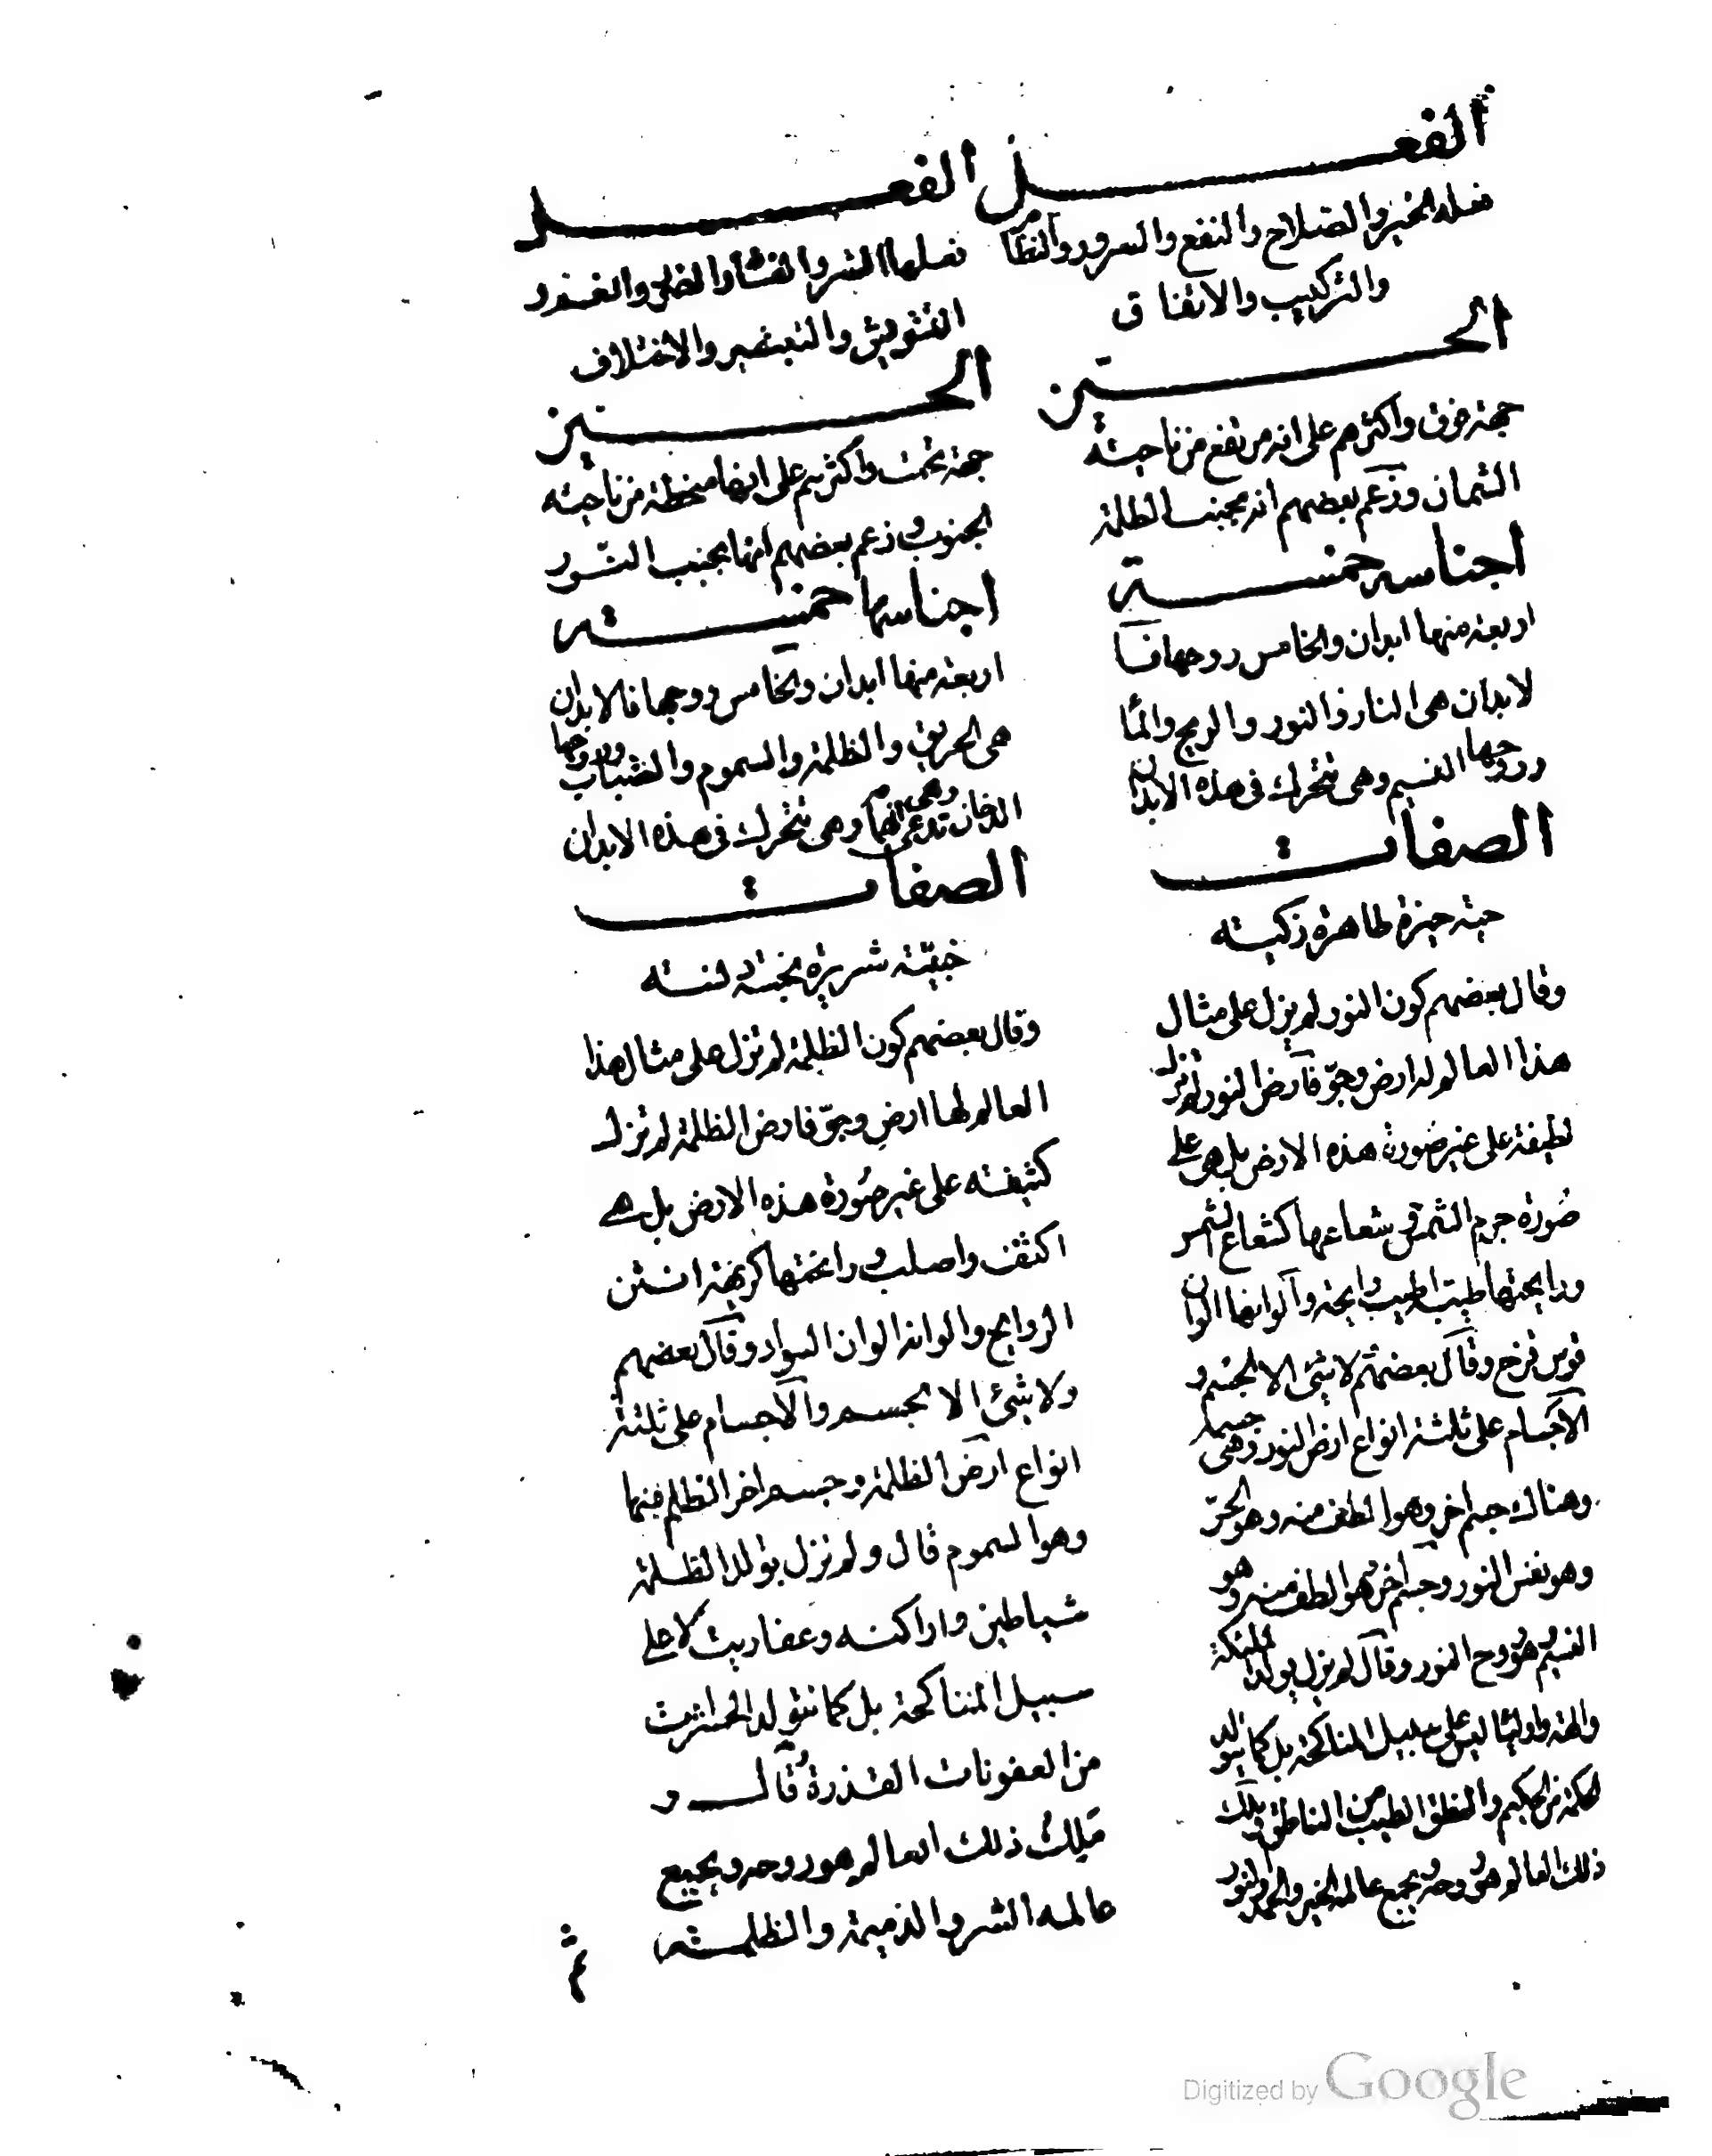 الفعل
فعله الخير والصلاح والنفع والسرور والنظام
والتركيب والاتفاق
الحيز
جهته فوق واكثرهم على انه مرتفع من ناحية
الشمال وزعم بعضهم انه بجنب الظلمة
اجناسه خمسة
اربعة منها ابدان والخامس روحها فا
لابدان هى النار والنور والريح والماء
وروحها النسيم وهى تتحرك فى هذه الابدان
الصفات
حية خيرة طاهرة زكية
وقال بعضهم كون النور لم يزل على مثال
هذا العالم له ارض وجو فارض النور لم تزل
لطيفة على غير صورة هذه الارض بل هى على
صورة جرم الشمس وشعاعها كشعاع الشمس
ورايحتها طيبة اطيب رايحة والوانها الوان
قوس قزح وقال بعضهم لا شئ الا الجسم و
الاجسام على ثلثة انواع ارض النور وهى خمسة
وهناك جسم اخر وهو الطف منه وهو الجو
وهو نفس النور وجسم اخر وهو الطف منه وهو
النسيم وهو روح النور وقال لم يزل يولد ملئكة
والهة واوليا ليس على سبيل المناكحة بل كما يتولد
الحكمة من الحكيم والنطق الطيب من الناطق وملك
ذلك العالم هو روحه ويجمع عالمه الخير والحمد والنور
الفعل
فعلها الشر والفساد والضر والغم و
التشويش والتبتير والاختلاف
الحيز
جهته تحت واكثرهم على انها منحطة من ناحية
الجنوب وزعم بعضهم انها بجنب النور
اجناسها خمسة
اربعة منها ابدان والخامس روحها فالابدان
هى الحريق والظلمة والسموم والضباب وروحها
الدخان وهى تدعى وهى تتحرك فى هذه الابدان
الصفات
خبيثة شريرة نجسة دنسة
وقال بعضهم كون الظلمة لم تزل على مثال هذا
العالم لها ارض وجو فارض الظلمة لم تزل
كثيفة على غير صورة هذه الارض بل هى
اكثف واصلب ورايحتها كريهة انتن
الروايح والوانها الوان السواد وقال بعضهم
ولا شئ الا الجسم والاجسام على ثلثة
انواع ارض الظلمة وجسم اخر اظلم منها
وهو السموم قال ولم تزل تولد الظلمة
شياطين واراكنة وعفاريت لا على
سبيل المناكحة بل كما تتولد الحشرات
من العفونات القذرة قال و
ملك ذلك العالم هو روحه ويجمع
عالمه الشر والذميمة والظلمة
ثم
Digitized by Google